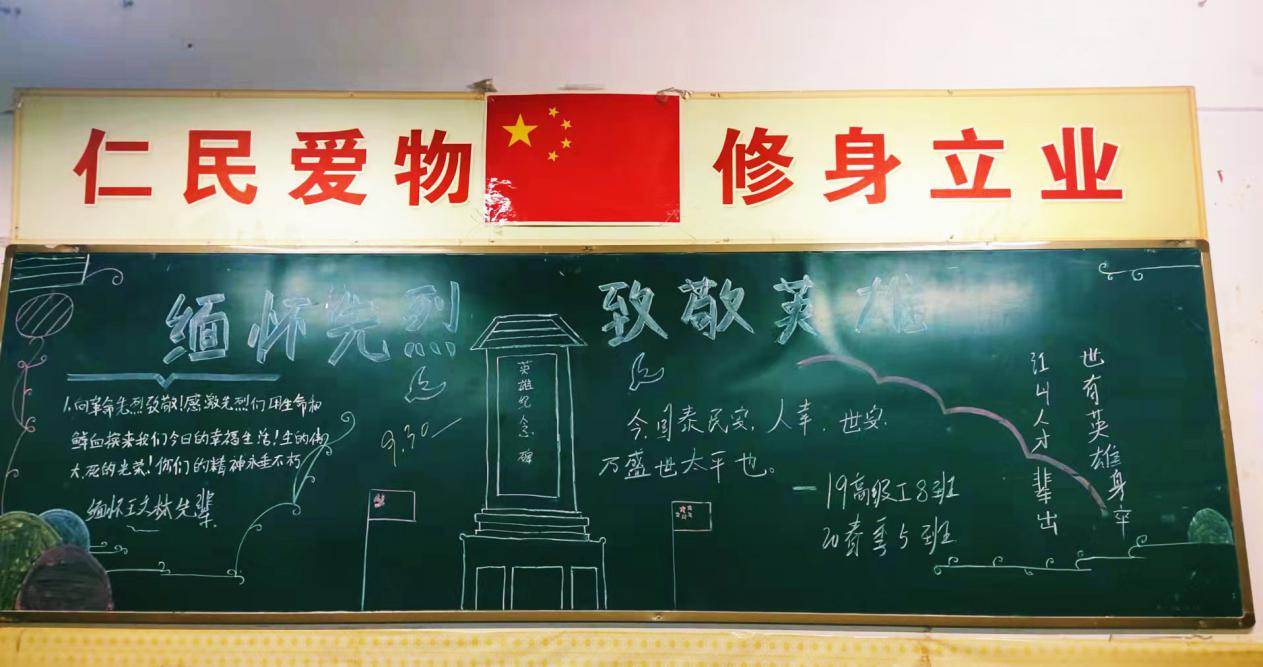 仁民爱物 修身立业
缅怀先烈 致敬英雄
1.向革命先烈致敬!感激先烈们用生命和
鲜血换来我们今日的幸福生活!生的伟
大,死的光荣!你们的精神永垂不朽
缅怀王文林先辈
9.30
英雄纪念碑
今国泰民安,人幸,世安.
乃盛世太平也。
一19高级工8班
20春季5班
世有英雄身卒
江山人才辈出